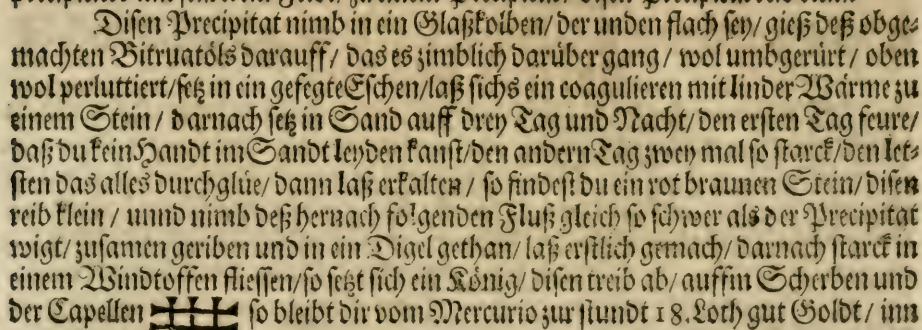 Disen Precipitat nimb in ein Glaßkolben/ der unden flach sey/ gieß deß obge-
machten Vitruatöls darauff/ das es zimblich darüber gang/ wol umbgerürt/ oben
wol perluttiert/ setz in ein gefegte Eschen/ laß sichs ein coagulieren mit linder Wärme zu
einem Stein/ darnach setz in Sand auff drey Tag und Nacht/ den ersten Tag feure/
daß du kein Handt im Sandt leyden kanst/ den andern Tag zwey mal so starck/ den let-
sten das alles durchglüe/ dann laß erkalten/ so findest du ein rot braunen Stein/ disen
reib klein/ unnd nimb deß hernach folgenden Fluß gleich so schwer als der Precipitat
wigt/ zusamen geriben und in ein Digel gethan/ laß erstlich gemach/ darnach starck in
einem Windtoffen fliessen/ so setzt sich ein König/ disen treib ab/ auffm Scherben und
der Capellen so bleibt dir vom Mercurio zur stundt 18. Loth gut Goldt/ unn